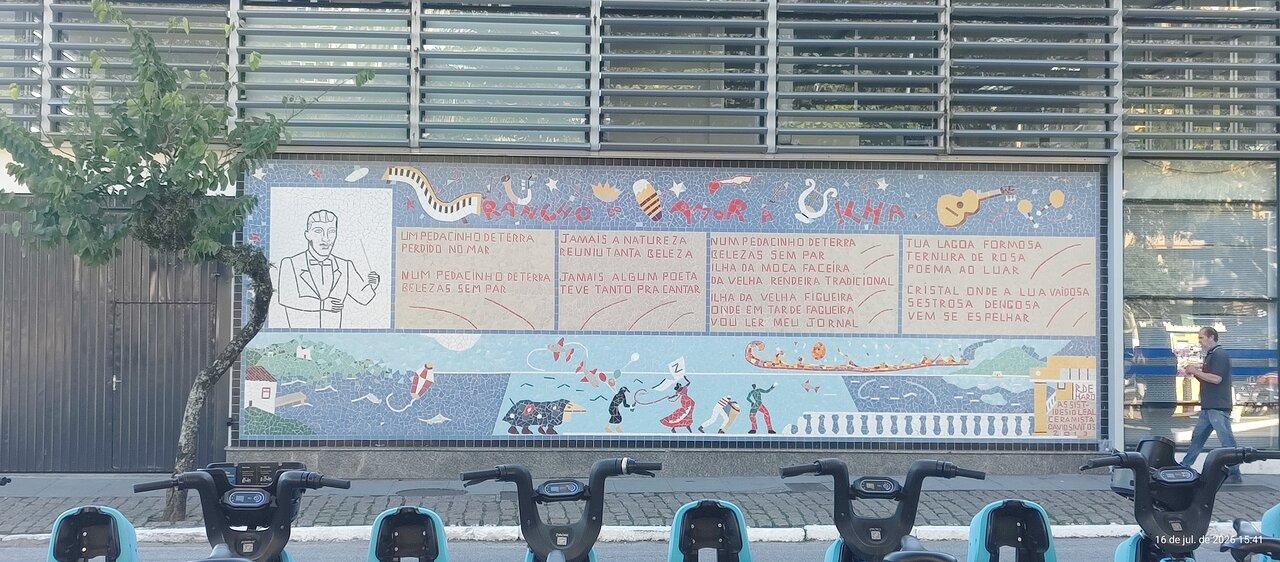 RANCHO DO AMOR À ILHA
UM PEDACINHO DE TERRA
PERDIDO NO MAR
NUM PEDACINHO DE TERRA
BELEZAS SEM PAR
JAMAIS A NATUREZA
REUNIU TANTA BELEZA
JAMAIS ALGUM POETA
TEVE TANTO PRA CANTAR
NUM PEDACINHO DE TERRA
BELEZAS SEM PAR
ILHA DA MOÇA FACEIRA
DA VELHA RENDEIRA TRADICIONAL
ILHA DA VELHA FIGUEIRA
ONDE EM TARDE FAGUEIRA
VOU LER MEU JORNAL
TUA LAGOA FORMOSA
TERNURA DE ROSA
POEMA AO LUAR
CRISTAL ONDE A LUA VAIDOSA
SESTROSA DENGOSA
VEM SE ESPELHAR
Z
ASSIST-
CERAMISTA
16 de jul. de 2026 15:41